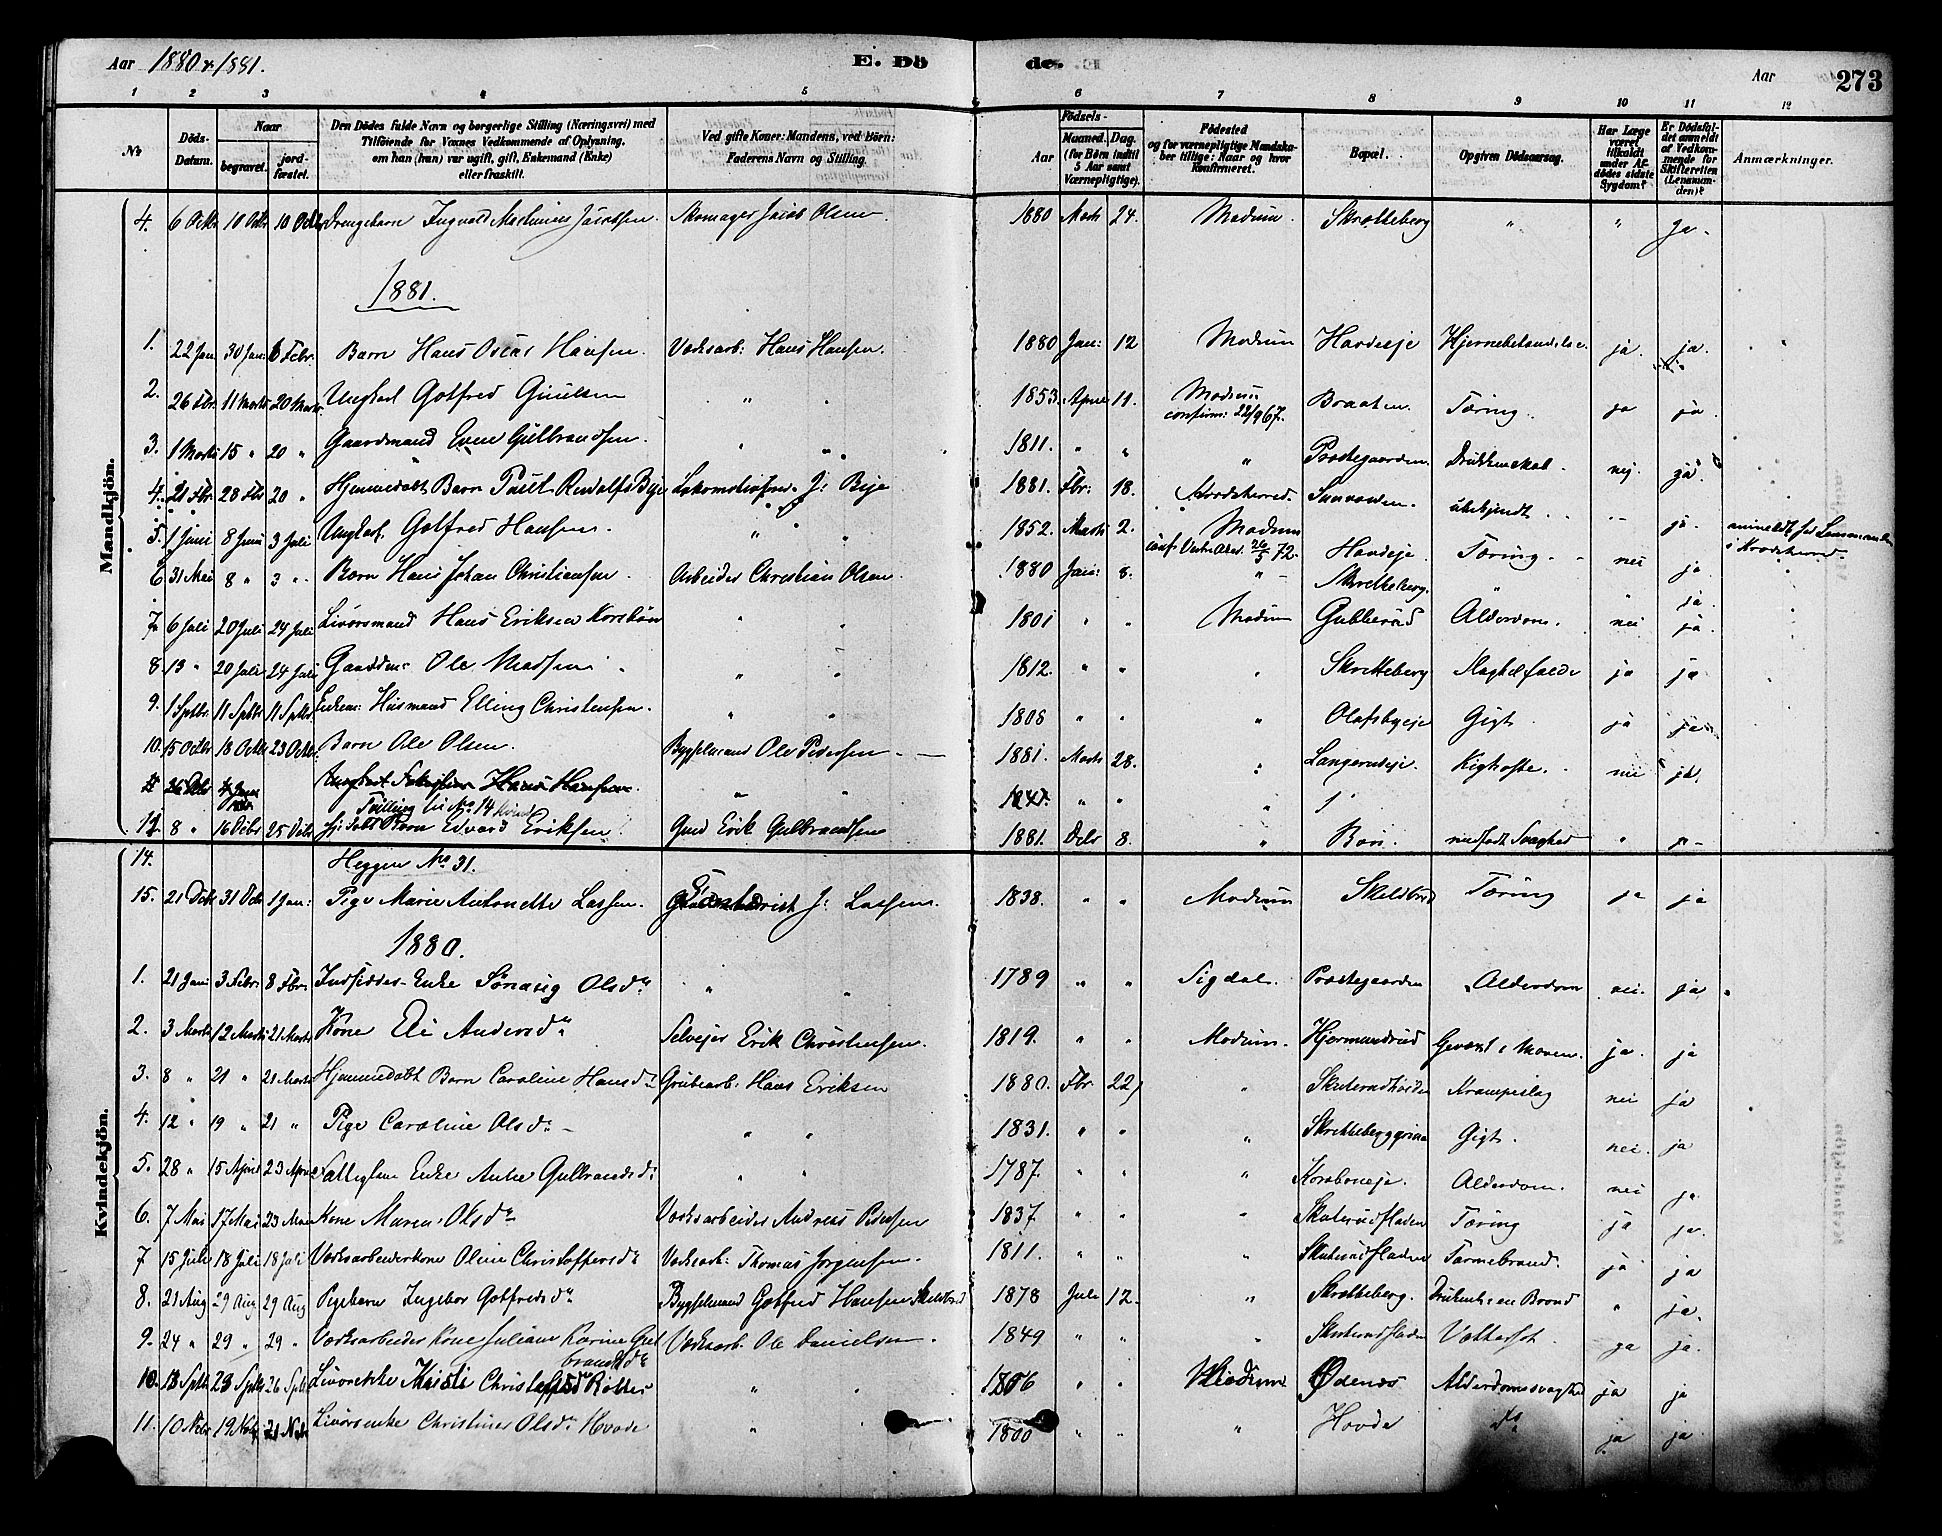 Aar 1880 & 1881.
E. Dö
de.
Aar
273
1 2 3 4 5 6 7 8 9 10 11 12
No
Döds-Datum.
Naar
begravet.
jordfæstet.
Den Dödes fulde Navn og borgerlige Stilling (Næringsvei) med
Tilföiende for Voxnes Vedkommende af Oplysning,
om han (hun) var ugift, gift, Enkemand (Enke)
eller fraskilt.
Ved gifte Koner: Mandens, ved Börn:
Faderens Navn og Stilling.
Födsels-
Aar
Maaned. Dag.
(for Börn indtil
5 Aar samt
Værnepligtige).
Födested
og for værnepligtige Mandska-
ber tillige: Naar og hvor
Konfirmeret.
Bopæl.
Opgiven Dödsaarsag.
Har Læge
været
tilkaldt
under Af-
dödes sidste
Sygdom?
Er Dödsfal-
det anmeldt
af Vedkom-
mende for
Skifteretten
(Lensman-
den)?
Anmærkninger.
Mandkjön.
4. 6 Octbr 10 Octbr 10 Octbr Drengebarn Ingvald Martinius Jacobsen Jacob Olsen 1880 Marts 24. Modum. Skretteberg " " Ja.
1881.
1. 22 Jan 30 Jan: 6 Febr. Barn Hans Oscar Hansen. Værksarb: Hans Hansen. 1880 Jan: 12 Modum Hovdeeje ja. ja.
2. 26 Fbr. 11 Marts 20 Marts Ungkarl Gotfred Giulsen " " 1853. April 11. Modum confirm: 22/9 67. Braaten. Tæring. ja ja.
3. 1 Marts 15 " 20 " Gaardmand Even Gulbrandsen. " " 1811. " " " Præstegaarden. Drukkenskab. nej. ja.
4. 21 Fbr 28 Fbr 20 " Hjemmedøbt Barn J. Beje 1881. Fbr: 18. Krødsherred. ubekjendt
5. 1 Juni 8 Juni 3 Juli Ungkarl Gotfred Hansen. " " 1852. Marts 2. Modum 26/5 72. Hovdeje. Tæring. nei ja. anmeldt for Lensmanden i Krødsherred.
6 31 Mai 8 " 3 " Barn Hans Johan Christiansen. Arbeider Christian Olsen. 1880 Jan: 8. " Skretteberg. " " ja
7. 6 Juli 20 Juli 24 Juli Livørsmand Hans Eriksen Korsbøn " " 1801 " " Modum Gubberud Alderdom. nei ja.
8 13 " 20 Juli 24 Juli Ole Madsen " " 1812. " " " Skretteberg ja ja
9. 1 Sptbr. 11 Sptbr 11 Sptbr Enkem: Husmand Elling Christensen. " " 1808 " " " Olafsbyeje Gigt ja ja
10. 15 Octbr 18 Octbr 23 Octbr. Barn Ole Olsen. Bygselmand Ole Pedersen 1881. Marts 28. " Langerudeje. Kighoste. nei ja.
Ungkarl Hans Hansen " " " "
Tvilling til No 14 Kvind
12. 8 " 16 Dcbr 25 Dcbr Hj: døbt Barn Edvard Eriksen. Gmd Erik Gulbrandsen 1881. Dcbr 8. " Böri. Svaghed " ja
14. Heggen No 31.
15. 21 Dcbr 31 Dcbr 1 Jan: Pige Marie Antonette Lassen. J: Lassen. 1838. " " Modum Skeldbred Tæring ja ja
Kvindekjön.
1880.
1. 21 Jan: 3 Febr. 8 Fbr. Enke Sønavig Olsdr " " 1789 " " Sigdal. Præstegaarden Alderdom nei. ja
2. 3 Marts 12 Marts 21 Marts Kone Eli Andersdr Selveier Erik Christensen. 1819. " " Modum. Hjermundrud Gevext i Maven. ja. ja
3. 8 " 21 " 21 Marts Hjemmedøbt Barn Caroline Hansdr Grubearb: Hans Eriksen 1880. Fbr. 22 " Krampeslag nei ja
4. 12 " 19 " 21 " Pige Caroline Olsdr " " 1831. " " " Gigt. nei. ja
5. 28 " 15 April 23 April Enke Anne Gulbrandsdr " " 1787. " " " Korsboneje. Alderdom. nei ja
6. 7 Mai 17 Mai 23 Mai Kone Maren Olsdr Værksarbeider Andreas Pedersen 1837 " " " Skuterudfladen Tæring ja ja.
7 15 Juli 18 Juli 18 Juli Værksarbeiderkone Oline Christoffersdr Værksarb: Thomas Jørgensen. 1811. " " " Skuterudfladen Tarmebrand. ja ja
8. 21 Aug 29 Aug 29 Aug Pigebarn Ingebor Gotfredsdr Bygselmand Gotfred Hansen Skeldbred 1878 Juli 12. " Skretteberg. Druknet i en Brønd " ja.
9. 24 " 29 " 29 " Værksarbeider Kone Juliane Karine Gulbrandsdr Værksarb. Ole Danielsen. 1849 " " " Skuterudfladen Vattersot. ja ja.
10. 18 Sptbr 23 Sptbr 26 Sptbr Kristi " " 1806 " " Modum Ødenæs Alderdomssvaghed ja ja
11. 10 Nvbr 19 Nvbr 21 Nvbr Livørsenke Christine Olsdr Hovde " " 1800 " " " Hovde do ja ja.